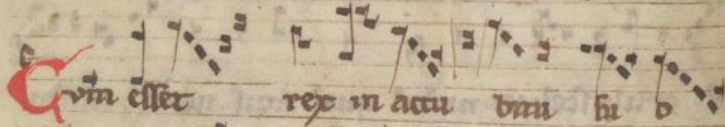 Cum esset rex in accu bitu su o